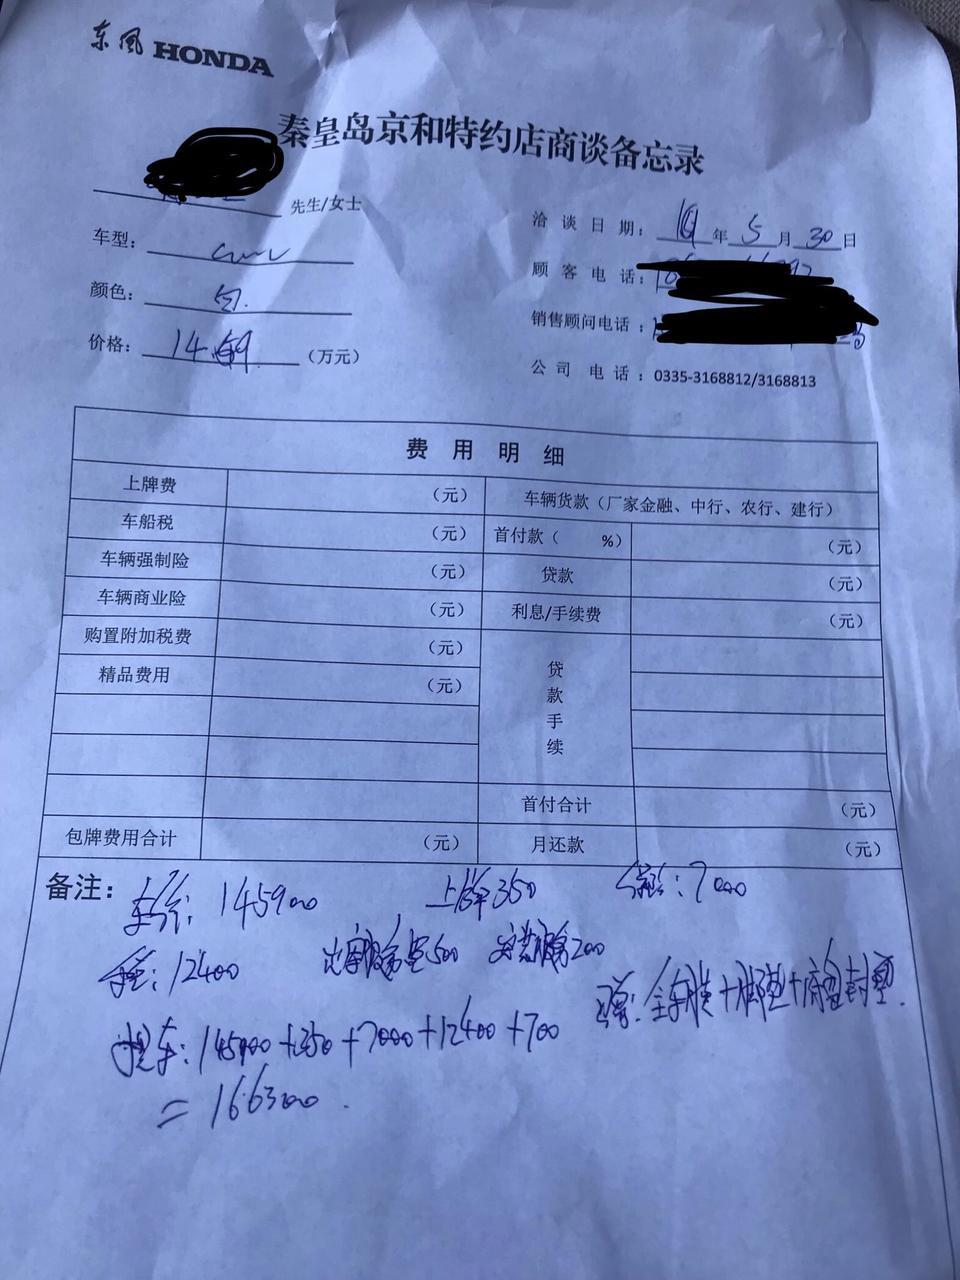 东风 HONDA
秦皇岛京和特约店商谈备忘录
先生/女士
洽谈日期： 19 年 5 月 30 日
车型：
顾客电话：
颜色： 白.
销售顾问电话：
价格： 14.69 （万元）
公司电话：0335-3168812/3168813
费用明细
上牌费 （元） 车辆货款（厂家金融、中行、农行、建行）
车船税 （元） 首付款（ %） （元）
车辆强制险 （元） 贷款 （元）
车辆商业险 （元） 利息/手续费 （元）
购置附加税费 （元） 贷款手续
精品费用 （元）
首付合计 （元）
包牌费用合计 （元） 月还款 （元）
备注： 车价：145900 上牌350 保险：7000
12400 出库服务费500 200
全车膜+脚垫+底盘封塑.
提车：145900+350+7000+12400+700
=166300.